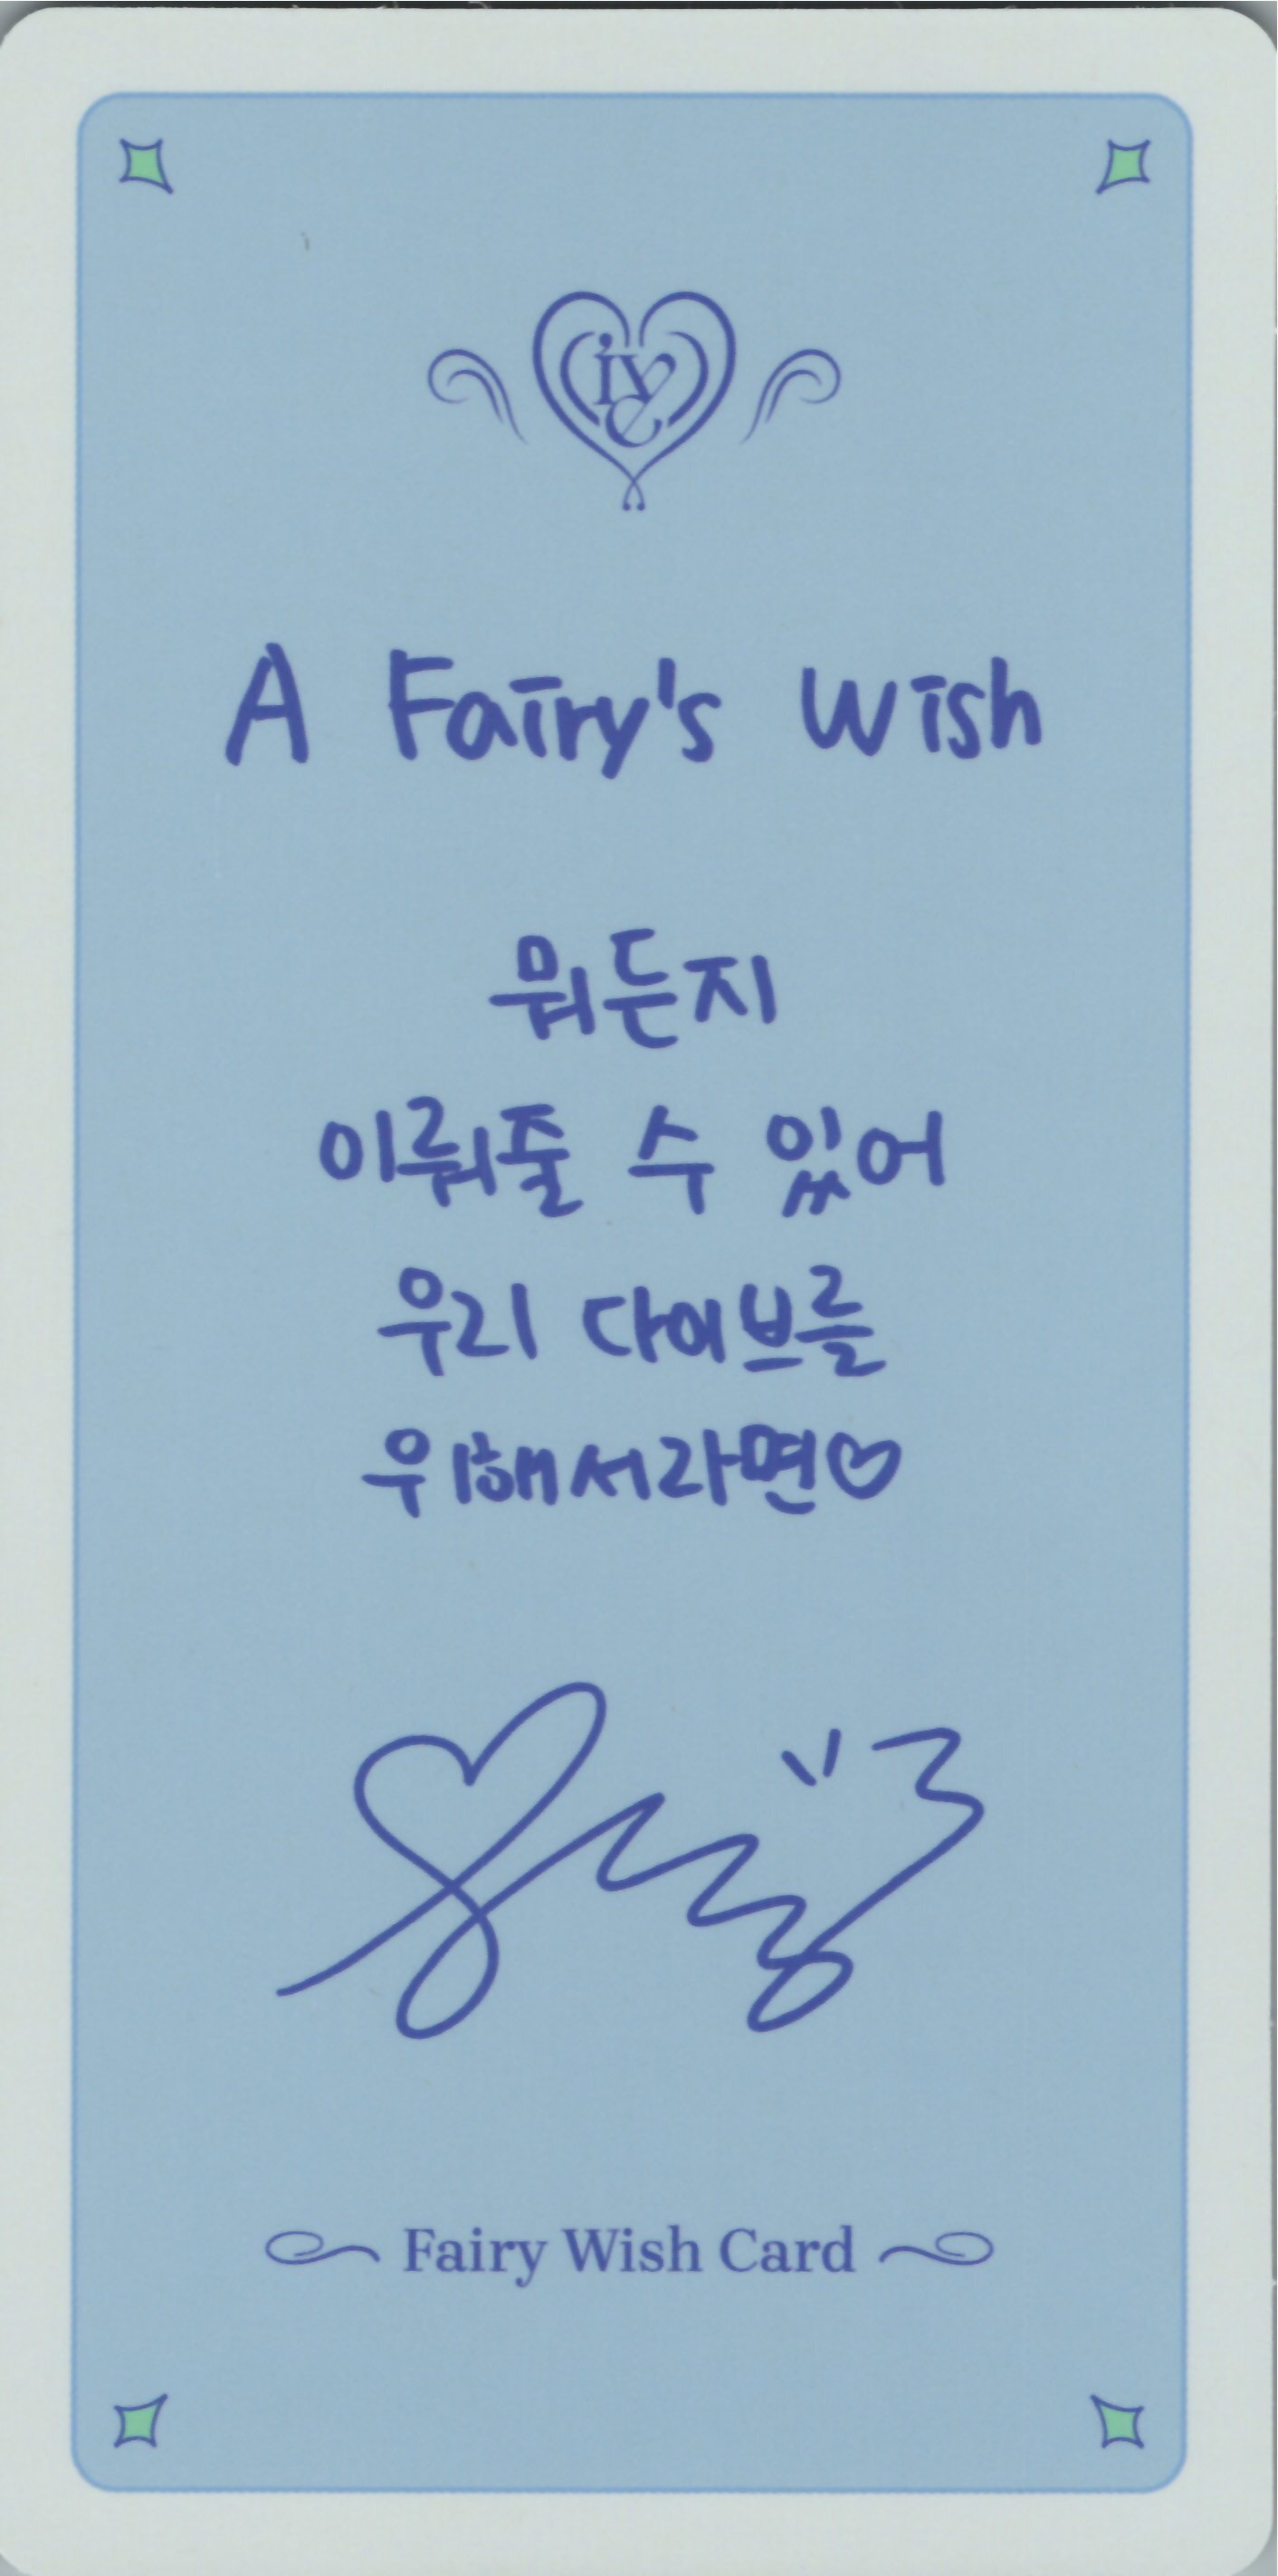 ive
A Fairy's Wish
뭐든지
이뤄줄 수 있어
우리 다이브를
위해서라면♡
Fairy Wish Card